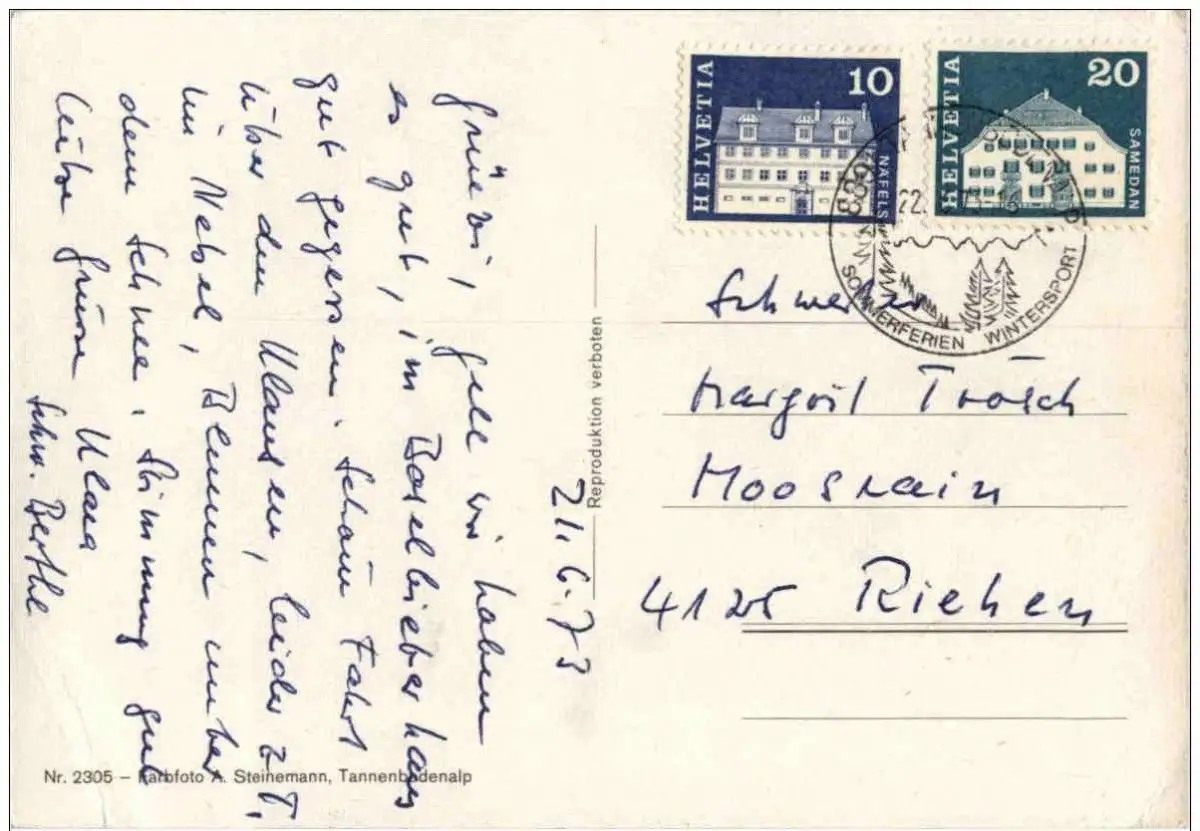 Grüezi, gell wir haben
es gut, im Baselbieterhaus
gut gegessen. Schöne Fahrt
über den Klausen, leider z.T.
im Nebel, Blumen unter
dem Schnee. Stimmung gut
Liebe Grüsse Klara
Schw. Berthe
21.6.73
Reproduktion verboten
Nr. 2305 – Farbfoto A. Steinemann, Tannenbodenalp
HELVETIA
10
NÄFELS
HELVETIA
20
SAMEDAN
22.
SOMMERFERIEN WINTERSPORT
Schwester
Margrit Trösch
Moosrain
4125 Riehen